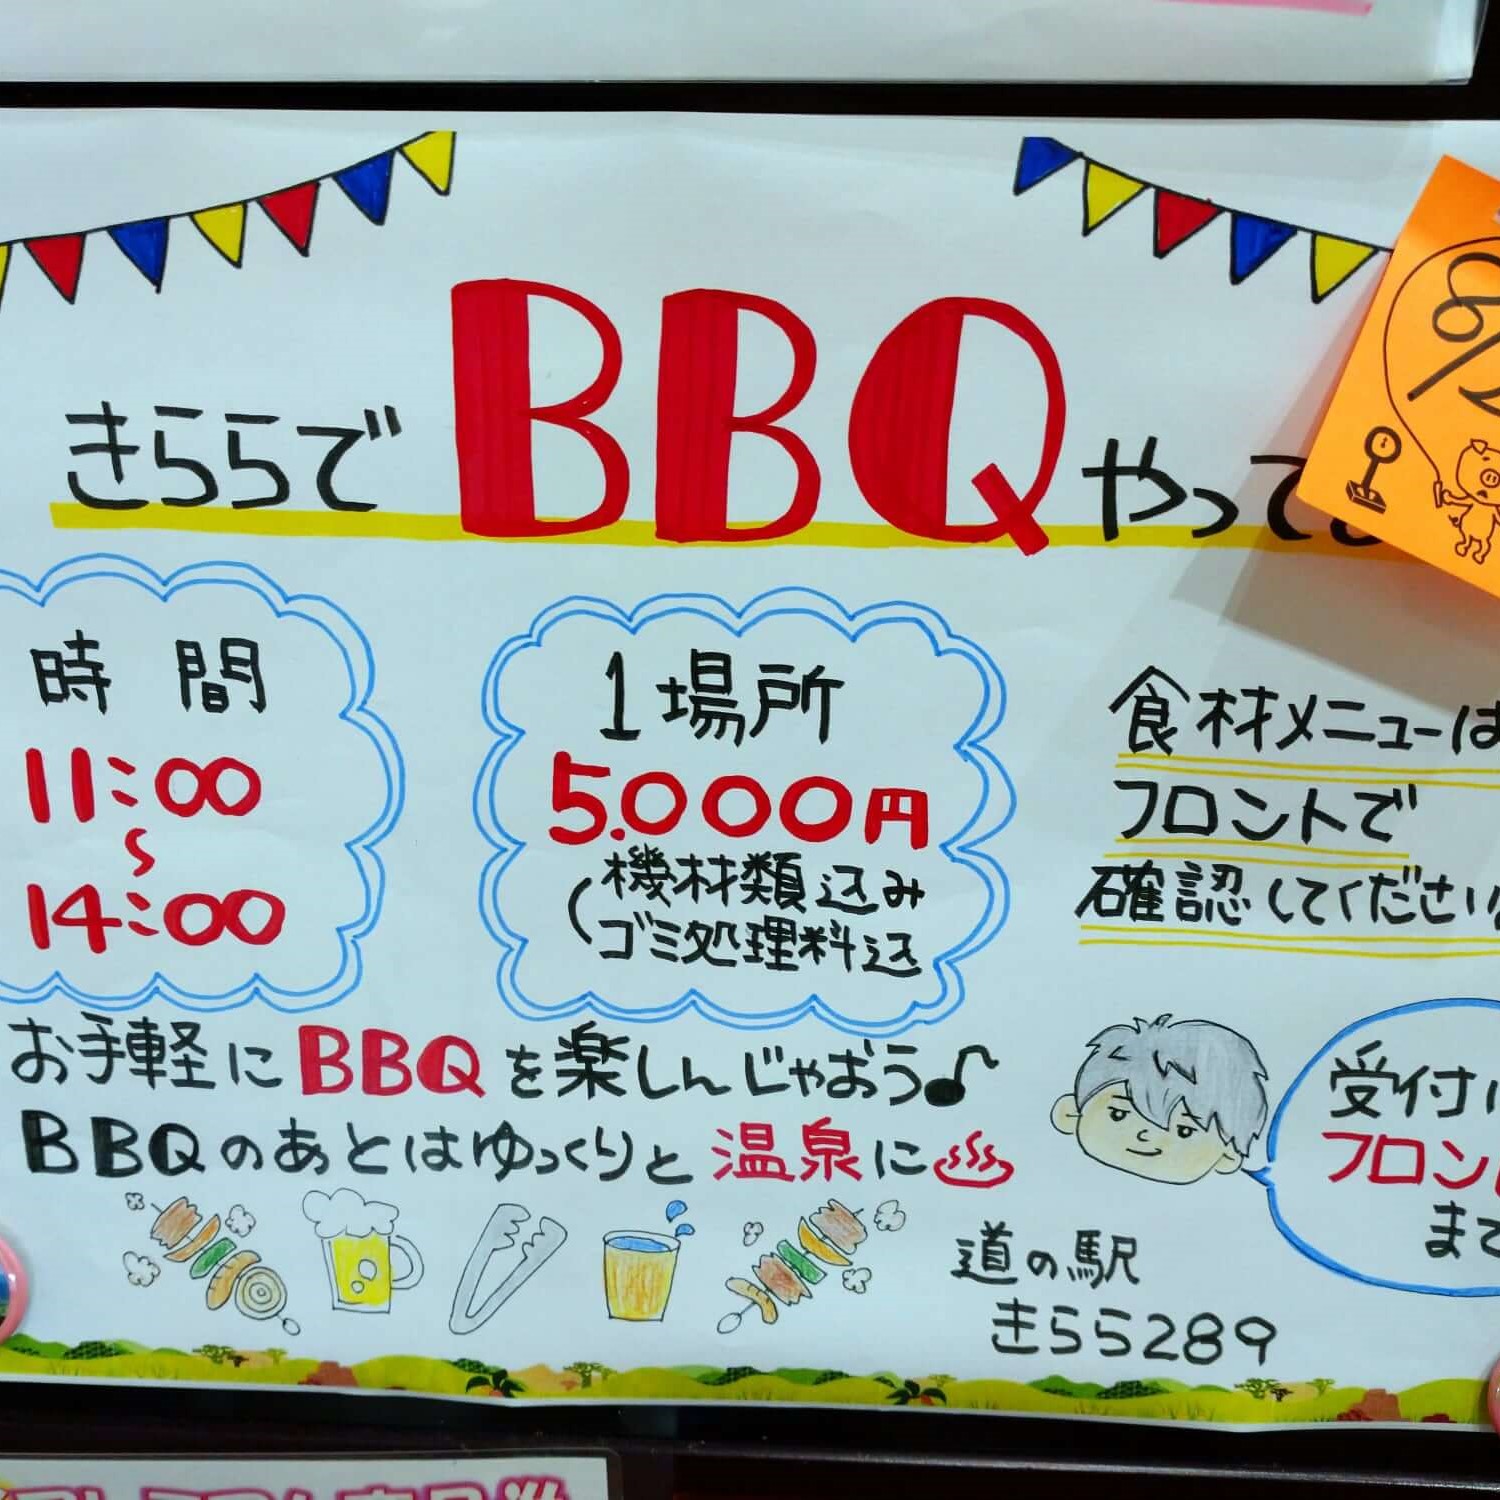 きららでBBQやって
時間
11:00
〜
14:00
1場所
5.000円
(機材類込み
ゴミ処理料込
食材メニューは
フロントで
確認してください
お手軽にBBQを楽しんじゃおう♪
BBQのあとはゆっくりと温泉に♨
受付
フロン
まで
道の駅
きらら289